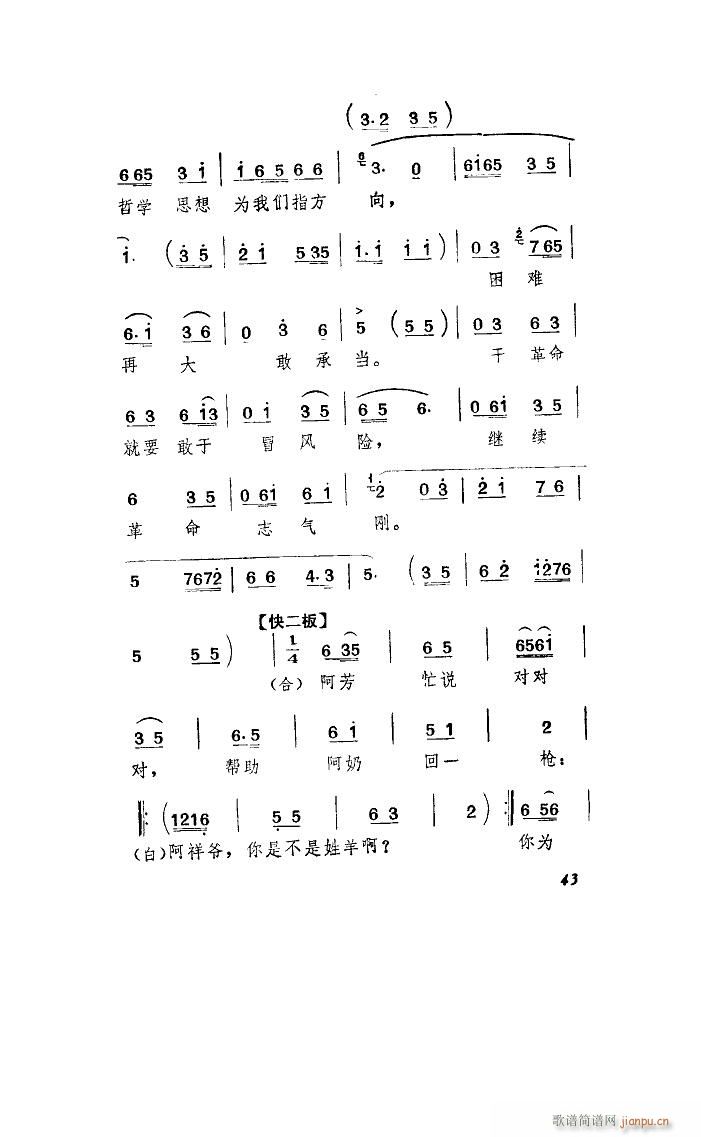 (3·2 35)
665 3i | i6566 | 3· 0 | 6i65 35 |
哲学 思想 为我们指方 向，
i· (35 | 2i 535 | i·i ii) | 03 765 |
困难
6·i 36 | 0 3 6 | 5 (55) | 03 63 |
再大 敢承当。 干革命
63 6i3 | 0i 35 | 65 6· | 06i 35 |
就要敢于 冒风险， 继续
6 35 | 06i 6i | 2 03 | 2i 76 |
革命 志气 刚。
5 7672 | 66 4·3 | 5· (35 | 62 i276
【快二板】
5 55) | 1/4 635 | 65 | 656i
(合) 阿芳 忙说 对对
35 | 6·5 | 6i | 51 | 2 |
对， 帮助 阿奶 回一 枪：
‖: (1216 | 55 | 63 | 2) :‖ 656 |
(白)阿祥爷，你是不是姓羊啊？ 你为
43
歌谱简谱网 jianpu.cn